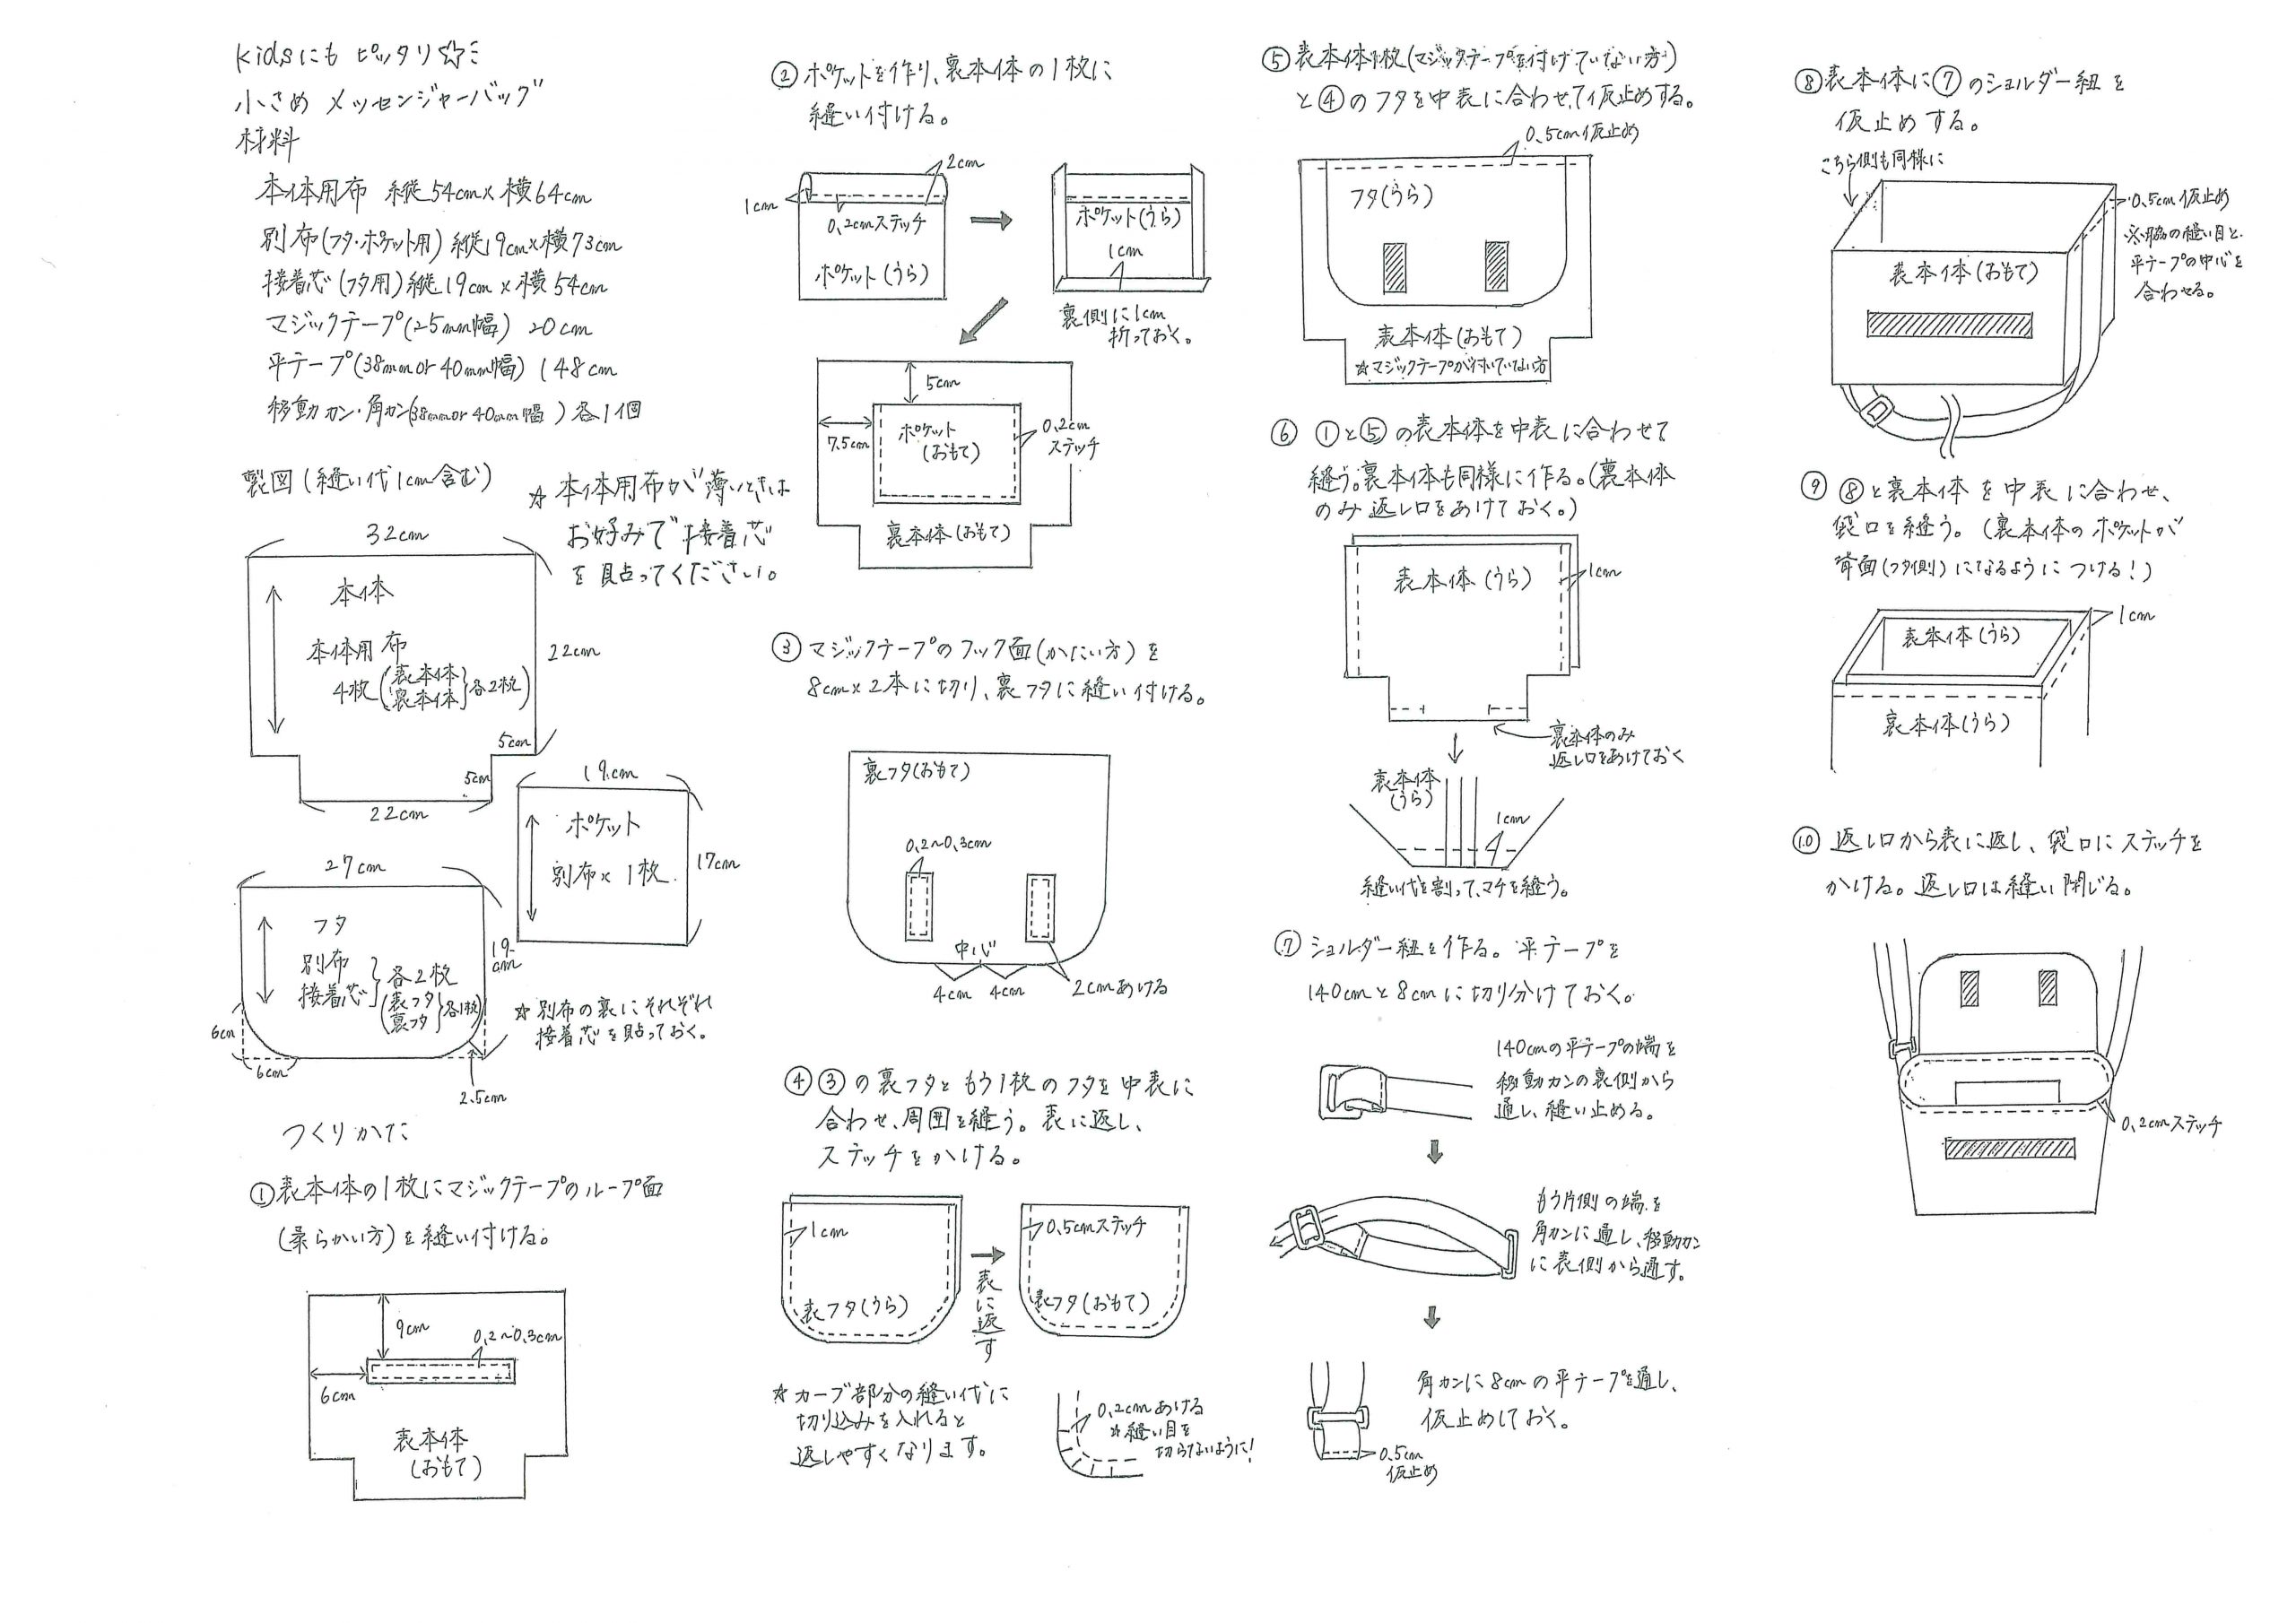 kidsにも ピッタリ☆ミ
小さめ メッセンジャーバッグ
材料
本体用布 縦54cm×横64cm
別布(フタ・ポケット用) 縦19cm×横73cm
接着芯(フタ用)縦19cm×横54cm
マジックテープ(25mm幅) 20cm
平テープ(38mm or 40mm幅) 148cm
移動カン・角カン(38mm or 40mm幅)各1個
製図(縫い代1cm含む)
☆本体用布が薄いときは
お好みで接着芯
を貼ってください。
32cm
本体
本体用布
4枚(表本体
裏本体}各2枚)
22cm
5cm
5cm
22cm
19cm
ポケット
別布×1枚
17cm
27cm
フタ
別布
接着芯}各2枚
(表フタ
裏フタ}各1枚)
19cm
6cm
6cm
2.5cm
☆別布の裏にそれぞれ
接着芯を貼っておく。
つくりかた
①表本体の1枚にマジックテープのループ面
(柔らかい方)を縫い付ける。
9cm
0.2~0.3cm
6cm
表本体
(おもて)
②ポケットを作り、裏本体の1枚に
縫い付ける。
2cm
1cm
0.2cmステッチ
ポケット(うら)
ポケット(うら)
1cm
裏側に1cm
折っておく。
5cm
7.5cm
ポケット
(おもて)
0.2cm
ステッチ
裏本体(おもて)
③マジックテープのフック面(かたい方)を
8cm×2本に切り、裏フタに縫い付ける。
裏フタ(おもて)
0.2~0.3cm
中心
4cm 4cm
2cmあける
④③の裏フタともう1枚のフタを中表に
合わせ、周囲を縫う。表に返し、
ステッチをかける。
1cm
表フタ(うら)
表に返す
0.5cmステッチ
表フタ(おもて)
☆カーブ部分の縫い代に
切り込みを入れると
返しやすくなります。
0.2cmあける
☆縫い目を
切らないように!
⑤表本体1枚(マジックテープを付けていない方)
と④のフタを中表に合わせて仮止めする。
0.5cm仮止め
フタ(うら)
表本体(おもて)
☆マジックテープが付いていない方
⑥ ①と⑤の表本体を中表に合わせて
縫う。裏本体も同様に作る。(裏本体
のみ返し口をあけておく。)
表本体(うら)
1cm
裏本体のみ
返し口をあけておく
表本体
(うら)
1cm
縫い代を割って、マチを縫う。
⑦ショルダー紐を作る。平テープを
140cmと8cmに切り分けておく。
140cmの平テープの端を
移動カンの裏側から
通し、縫い止める。
もう片側の端を
角カンに通し、移動カン
に表側から通す。
角カンに8cmの平テープを通し、
仮止めしておく。
0.5cm
仮止め
⑧表本体に⑦のショルダー紐を
仮止めする。
こちら側も同様に
0.5cm仮止め
※脇の縫い目と、
平テープの中心を
合わせる。
表本体(おもて)
⑨ ⑧と裏本体を中表に合わせ、
袋口を縫う。(裏本体のポケットが
背面(フタ側)になるようにつける!)
1cm
表本体(うら)
裏本体(うら)
⑩返し口から表に返し、袋口にステッチを
かける。返し口は縫い閉じる。
0.2cmステッチ